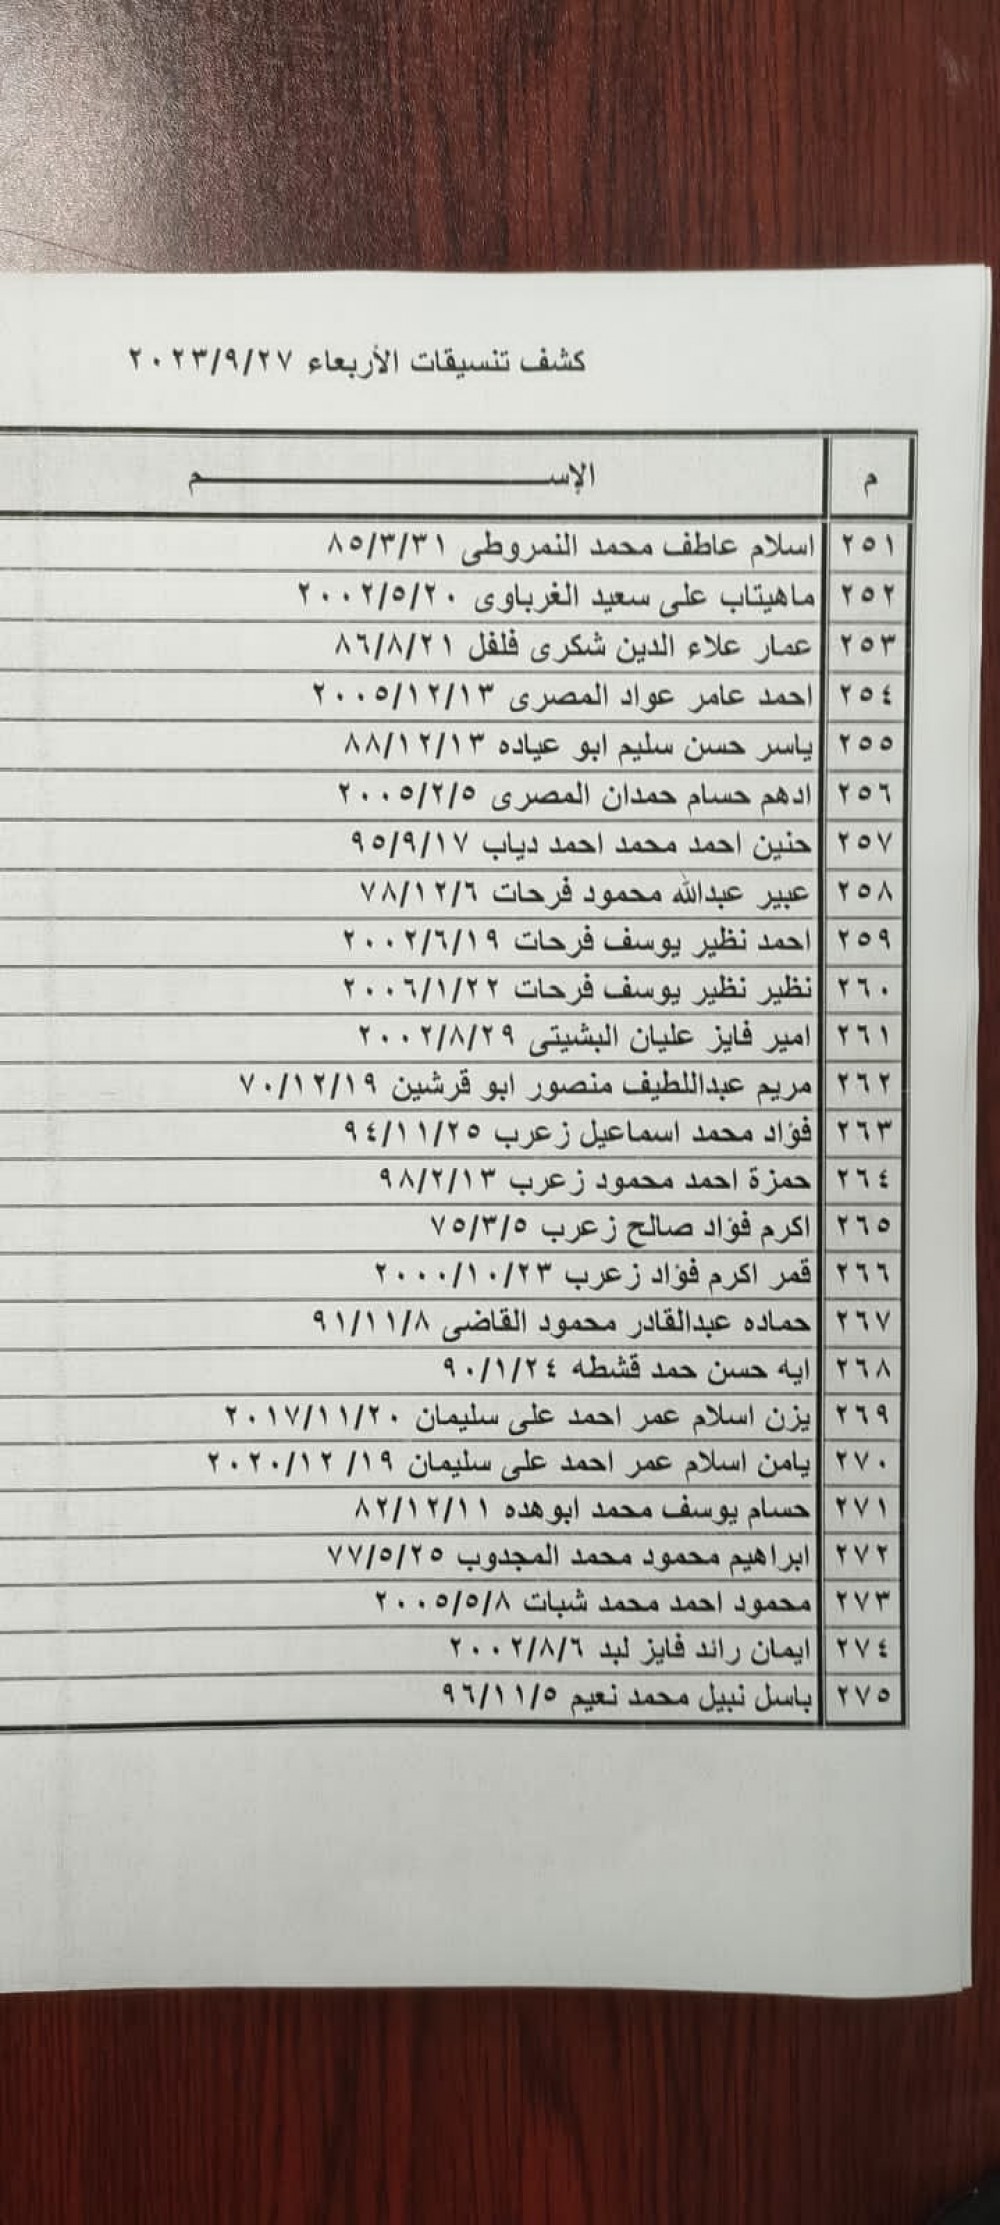 كشف تنسيقات الأربعاء ٢٠٢٣/٩/٢٧
م الإســــــــــــــم
٢٥١ اسلام عاطف محمد النمروطى ٨٥/٣/٣١
٢٥٢ ماهيتاب على سعيد الغرباوى ٢٠٠٢/٥/٢٠
٢٥٣ عمار علاء الدين شكرى فلفل ٨٦/٨/٢١
٢٥٤ احمد عامر عواد المصرى ٢٠٠٥/١٢/١٣
٢٥٥ ياسر حسن سليم ابو عياده ٨٨/١٢/١٣
٢٥٦ ادهم حسام حمدان المصرى ٢٠٠٥/٢/٥
٢٥٧ حنين احمد محمد احمد دياب ٩٥/٩/١٧
٢٥٨ عبير عبدالله محمود فرحات ٧٨/١٢/٦
٢٥٩ احمد نظير يوسف فرحات ٢٠٠٢/٦/١٩
٢٦٠ نظير نظير يوسف فرحات ٢٠٠٦/١/٢٢
٢٦١ امير فايز عليان البشيتى ٢٠٠٢/٨/٢٩
٢٦٢ مريم عبداللطيف منصور ابو قرشين ٧٠/١٢/١٩
٢٦٣ فؤاد محمد اسماعيل زعرب ٩٤/١١/٢٥
٢٦٤ حمزة احمد محمود زعرب ٩٨/٢/١٣
٢٦٥ اكرم فؤاد صالح زعرب ٧٥/٣/٥
٢٦٦ قمر اكرم فؤاد زعرب ٢٠٠٠/١٠/٢٣
٢٦٧ حماده عبدالقادر محمود القاضى ٩١/١١/٨
٢٦٨ ايه حسن حمد قشطه ٩٠/١/٢٤
٢٦٩ يزن اسلام عمر احمد على سليمان ٢٠١٧/١١/٢٠
٢٧٠ يامن اسلام عمر احمد على سليمان ٢٠٢٠/١٢/١٩
٢٧١ حسام يوسف محمد ابوهده ٨٢/١٢/١١
٢٧٢ ابراهيم محمود محمد المجدوب ٧٧/٥/٢٥
٢٧٣ محمود احمد محمد شبات ٢٠٠٥/٥/٨
٢٧٤ ايمان رائد فايز لبد ٢٠٠٢/٨/٦
٢٧٥ باسل نبيل محمد نعيم ٩٦/١١/٥